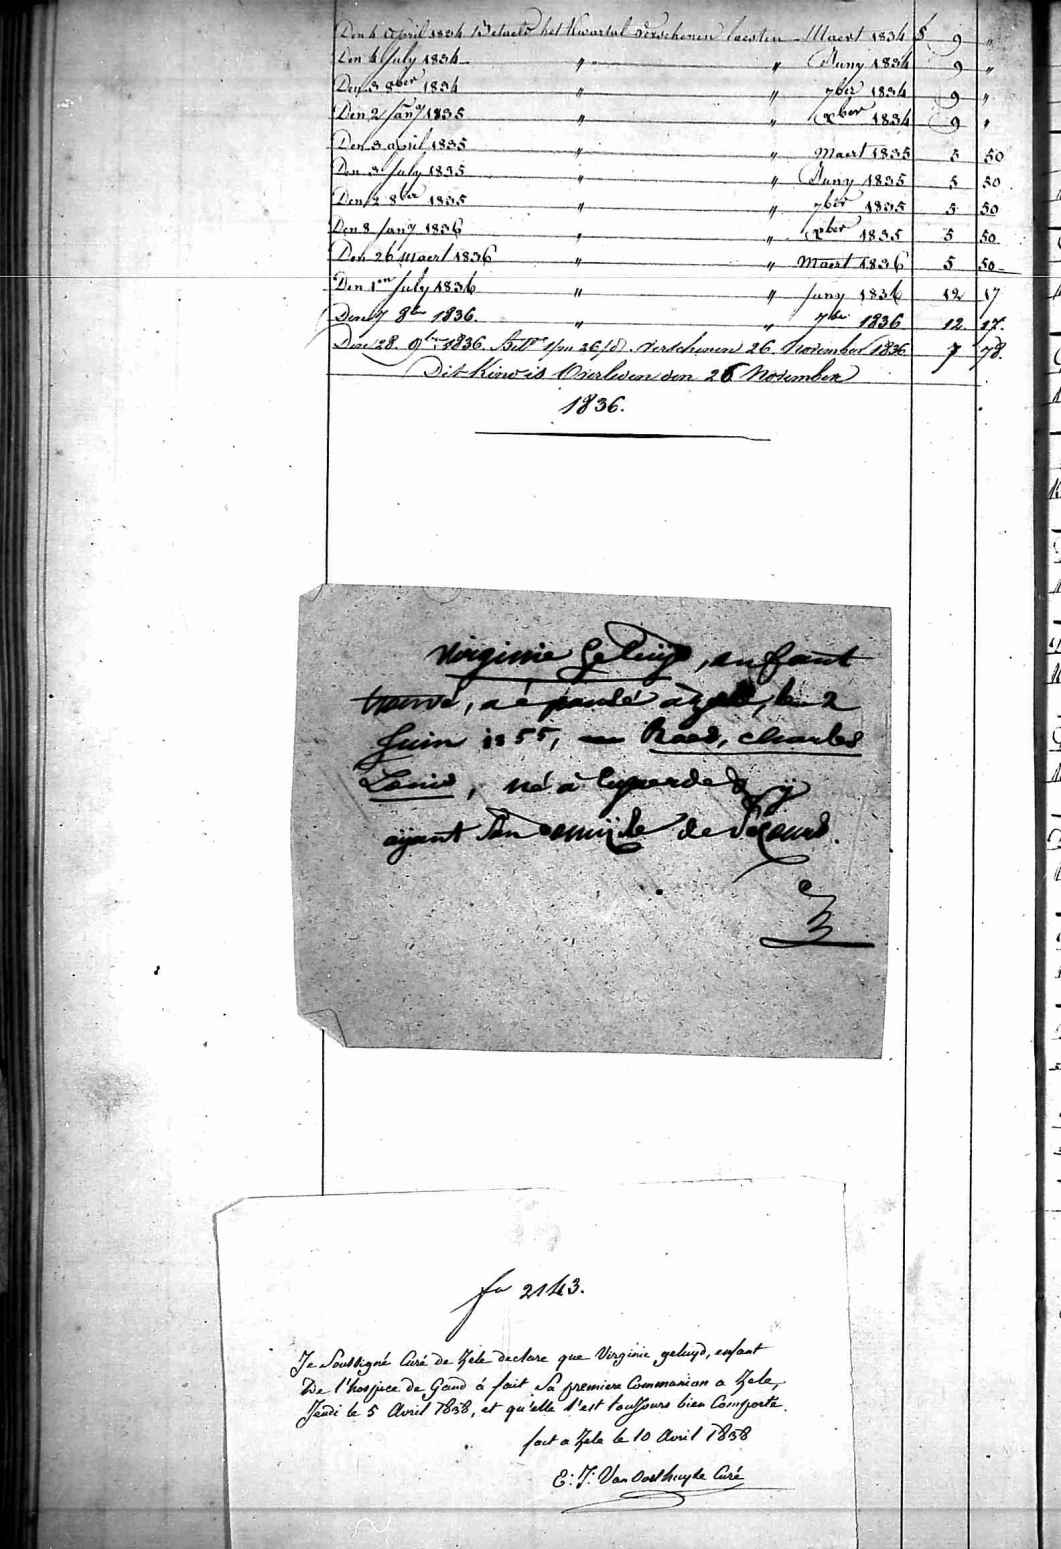 Den 4 April 1834 Betaeld het Kwartal verschenen laesten Maert 1834 f 9 "
Den 4 July 1834 " " Juny 1834 9 "
Den 3 8ber 1834 " " 7ber 1834 9 "
Den 2 Jany 1835 " " Xber 1834 9 "
Den 3 april 1835 " " Maert 1835 5 50
Den 3 July 1835 " " Juny 1835 5 50
Den 2 8ber 1835 " " 7ber 1835 5 50
Den 8 Jany 1836 " " Xber 1835 5 50
Den 26 Maert 1836 " " Maert 1836 5 50
Den 1en July 1836 " " Juny 1836 12 17
Den 7 8br 1836. " " 7br 1836 12. 17.
Den 28. 9br 1836. verschenen 26 november 1836 7 78
Dit Kind is Overleden den 26 November
1836.
Virginie Geluyd, enfant
trouvé, a épousé à Zele, le 2
Juin 1855, un Raes, Charles
Louis, né à Cyperde & y
ayant son domicile de Secours.
fo 2143.
Je Soussigné Curé de Zele declare que Virginie geluyd, enfant
De l'hospice de Gand à fait Sa premiere Communion a Zele,
Jeudi le 5 Avril 1838, et qu'elle s'est toujours bien Comporte.
fait a Zele le 10 Avril 1838
E: J: Van Oosthuyse Curé